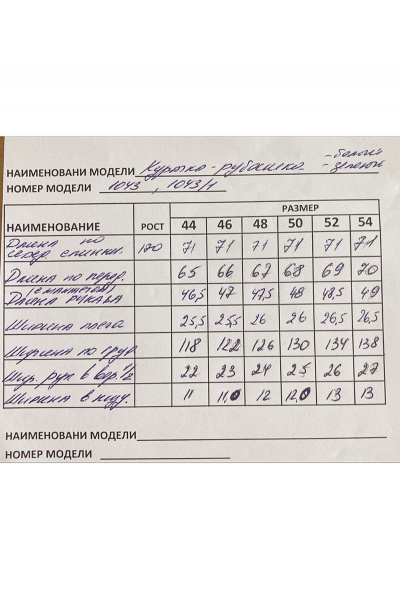 - белый
НАИМЕНОВАНИ МОДЕЛИ Куртка-рубашка - зеленый
НОМЕР МОДЕЛИ 1043, 1043/1
РАЗМЕР
НАИМЕНОВАНИЕ РОСТ 44 46 48 50 52 54
Длина по
серед. спинки. 170 71 71 71 71 71 71
Длина по перед. 65 66 67 68 69 70
(с манжетом)
Длина рукава 46,5 47 47,5 48 48,5 49
Ширина плеча 25,5 25,5 26 26 26,5 26,5
Ширина по груд 118 122 126 130 134 138
Шир. рук в вер. 1/2 22 23 24 25 26 27
Ширина в низу. 11 11,0 12 12,0 13 13
НАИМЕНОВАНИ МОДЕЛИ
НОМЕР МОДЕЛИ